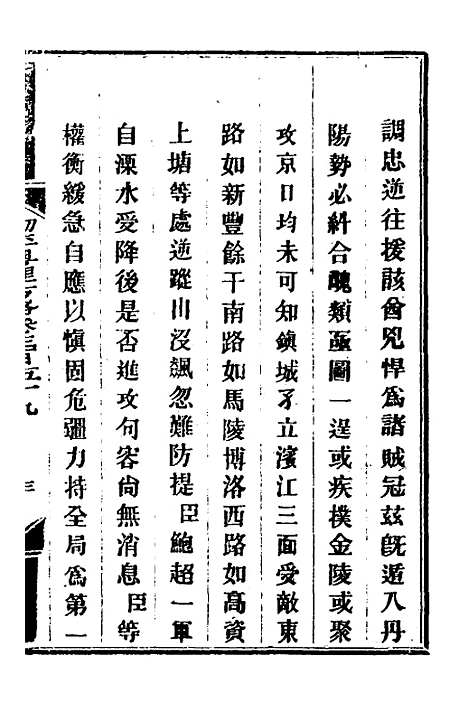 調忠逆往援該酋兇悍爲諸賊冠茲旣遁入丹
陽勢必糾合醜類亟圖一逞或疾撲金陵或聚
攻京口均未可知鎭城孑立濱江三面受敵東
路如新豐餘干南路如馬陵博洛西路如高資
上塘等處逆蹤出沒飄忽難防提臣鮑超一軍
自溧水受降後是否進攻句容尙無消息臣等
權衡緩急自應以愼固危疆力持全局爲第一
三